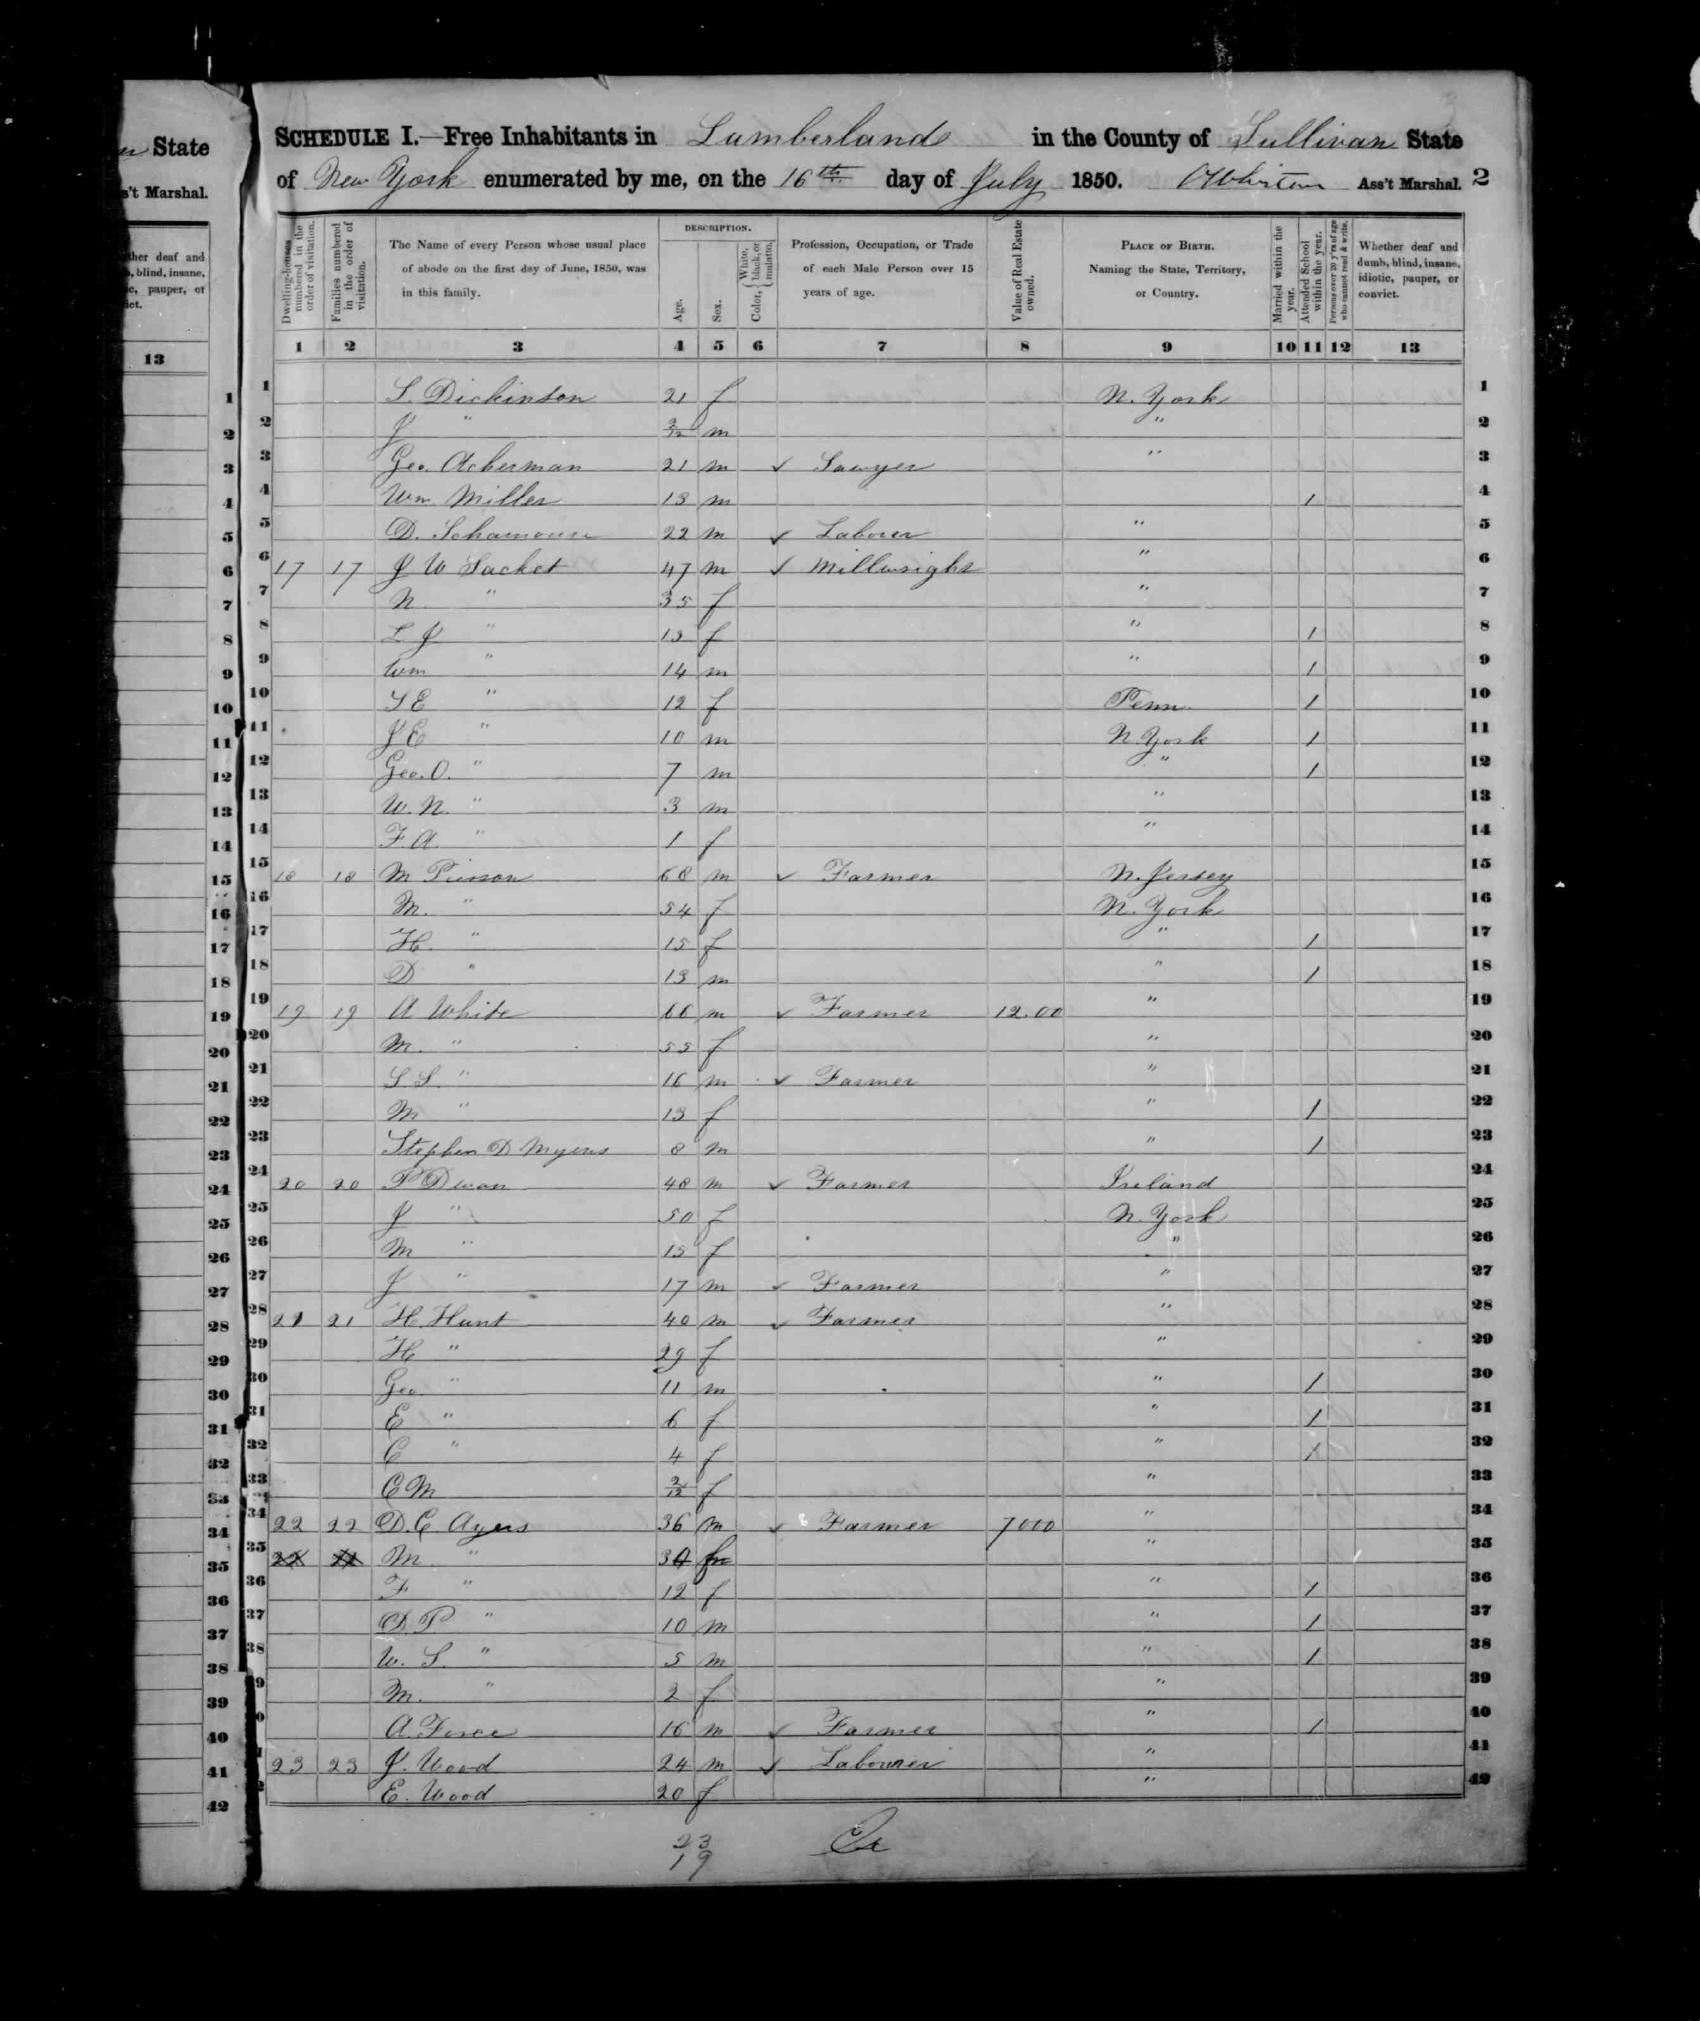 State
s't Marshal.
ther deaf and
, blind, insane,
c, pauper, or
ict.
13
SCHEDULE I.—Free Inhabitants in Lumberland in the County of Sullivan State
of New York enumerated by me, on the 16th day of July 1850. Ass't Marshal. 2
Dwelling-houses numbered in the order of visitation.
Families numbered in the order of visitation.
The Name of every Person whose usual place of abode on the first day of June, 1850, was in this family.
DESCRIPTION.
Age.
Sex.
Color, { White, black, or mulatto.
Profession, Occupation, or Trade of each Male Person over 15 years of age.
Value of Real Estate owned.
PLACE OF BIRTH. Naming the State, Territory, or Country.
Married within the year.
Attended School within the year.
Persons over 20 y'rs of age who cannot read & write.
Whether deaf and dumb, blind, insane, idiotic, pauper, or convict.
1 2 3 4 5 6 7 8 9 10 11 12 13
1 S. Dickinson 21 f N. York 1
2 J " m " 2
3 Geo. Ackerman 21 m ✓ Sawyer " 3
4 Wm Miller 13 m 1 4
5 D. 22 m ✓ Laborer " 5
6 17 17 J W Sacket 47 m ✓ Millwright " 6
7 N. " 35 f " 7
8 L J " f " 1 8
9 Wm " 14 m " 1 9
10 S E " 12 f Penn. 1 10
11 J E " 10 m N. York 1 11
12 Geo. O. " 7 m " 1 12
13 W. N. " 3 m " 13
14 F. A. " 1 f " 14
15 18 18 M 68 m ✓ Farmer N. Jersey 15
16 M. " 54 f N. York 16
17 H. " 15 f " 1 17
18 D " 13 m " 1 18
19 19 19 A White 66 m ✓ Farmer 12.00 " 19
20 M. " 55 f " 20
21 S S. " 16 m ✓ Farmer " 21
22 M " 13 f " 1 22
23 Stephen D Myers 8 m " 1 23
24 20 20 P Dwan 48 m ✓ Farmer Ireland 24
25 J " 50 f N. York 25
26 M " 15 f " 26
27 J " 17 m ✓ Farmer " 27
28 21 21 H. Hunt 40 m ✓ Farmer " 28
29 H " 29 f " 29
30 Geo. " 11 m " 1 30
31 E " 6 f " 1 31
32 C " 4 f " 1 32
33 C M 2/12 f " 33
34 22 22 D. C Ayers 36 m ✓ Farmer 7000 " 34
35 M " " 35
36 F " 12 f " 1 36
37 D. P " 10 m " 1 37
38 W. S. " 5 m " 1 38
9 M. " 2 f " 39
0 A. Force 16 m ✓ Farmer " 1 40
23 23 J. Wood 24 m ✓ Labourer " 41
2 E. Wood 20 f " 42
23
19